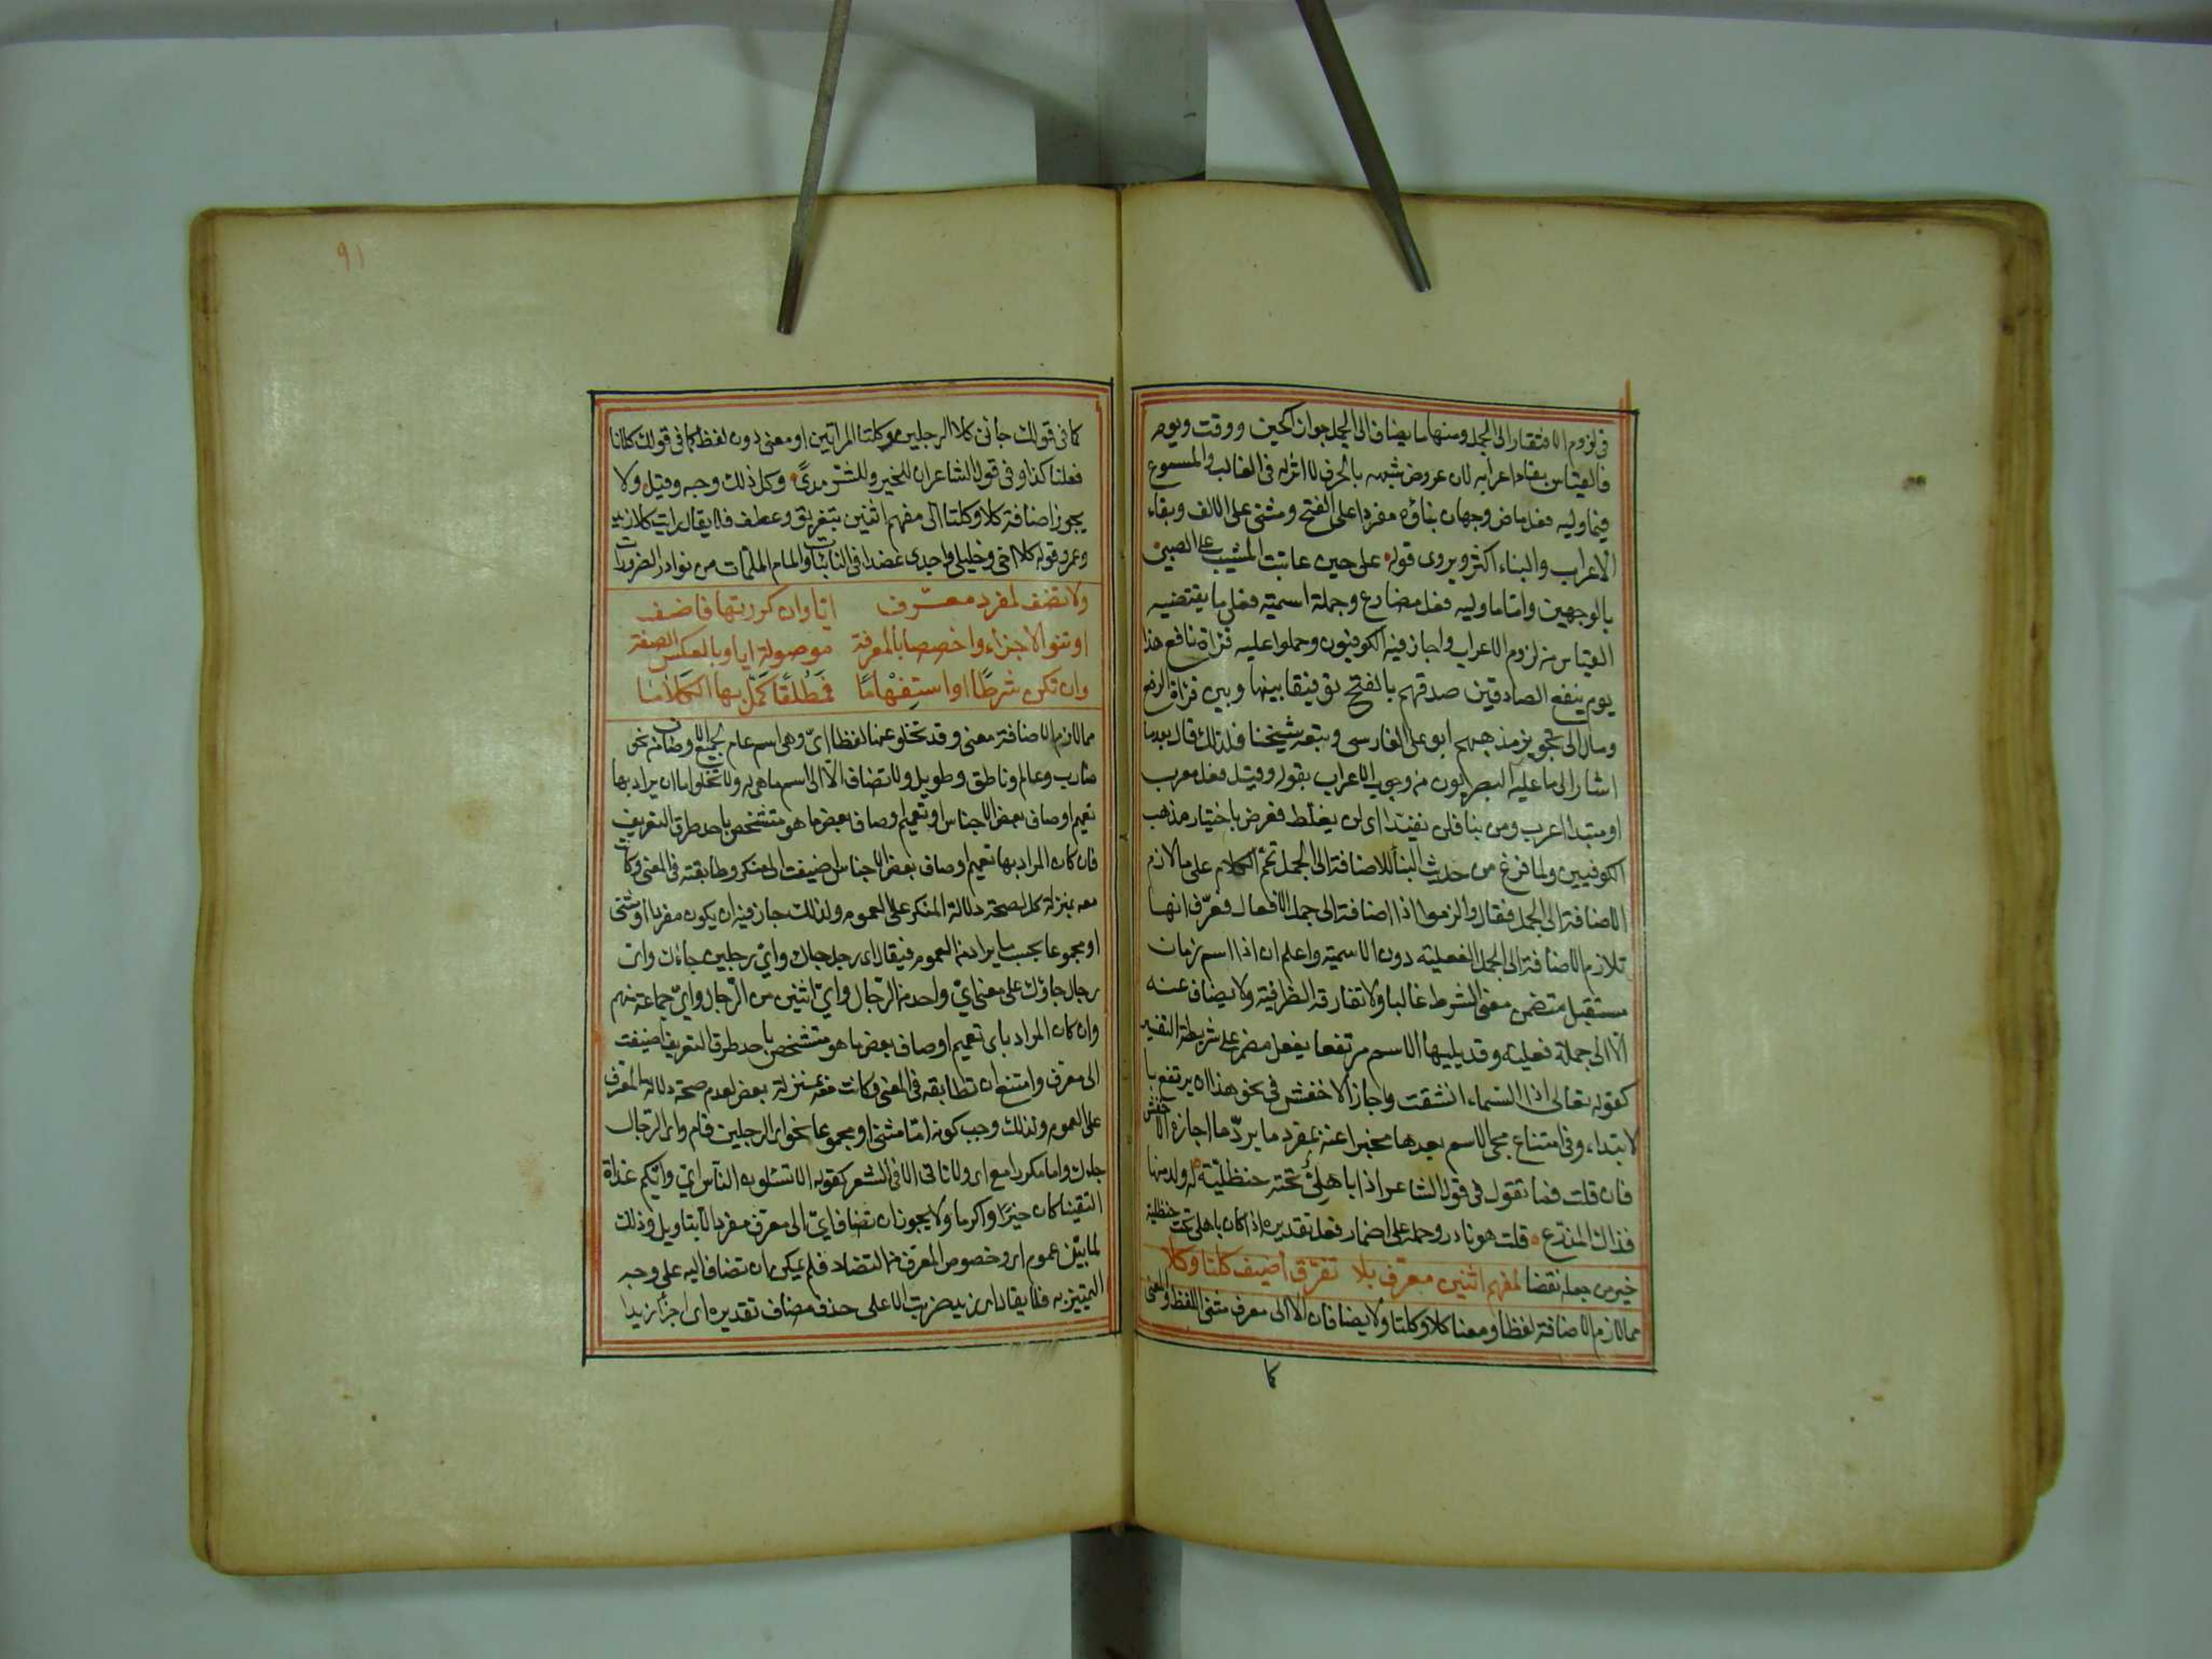 في لزوم الافتقار الى الجمل ومنها ما يضاف الى الجمل جوازا كحين ووقت ويوم
فالقياس بقاء اعرابه لان عروض شبهه بالحرف لا اثر له في الغالب والمسموع
فيما وليه فعل ماض وجهان بناؤه مفردا على الفتح ومثنى على الالف وبقاء
الاعراب والبناء اكثر ويروى قوله على حين عاتبت المشيب على الصبى
بالوجهين واما ما وليه فعل مضارع وجملة اسمية فعلى ما يقتضيه
القياس من لزوم الاعراب واجاز فيه الكوفيون وحملوا عليه قراة نافع هذا
يوم ينفع الصادقين صدقهم بالفتح توفيقا بينها وبين قراة الرفع
ومال الى تجويز مذهبهم ابو على الفارسي وتبعه شيخنا فلذلك قال بعد ما
اشار الى ما عليه البصريون من وجوب الاعراب بقوله وقبل فعل معرب
او مبتدا اعرب ومن بنا فلن يفندا اي لن يغلط فعرض باختيار مذهب
الكوفيين ولما فرغ من حديث البنا للاضافة الى الجمل تمم الكلام على ما لازم
الاضافة الى الجمل فقال والزموا اذا اضافة الى جمل الافعال فعرف انها
تلازم الاضافة الى الجمل الفعلية دون الاسمية واعلم ان اذا اسم زمان
مستقبل متضمن معنى الشرط غالبا ولا تفارقه الظرفية ولا يضاف عنه
الا الى جملة فعلية وقد يليها الاسم مرتفعا بفعل مضمر على شريطة التفسير
كقوله تعالى اذا السماء انشقت واجاز الاخفش في نحو هذا ان يرتفع با
لابتداء وفي امتناع مجى الاسم بعدها مخبرا عنه بمفرد ما يرد ما اجازه الاخفش
فان قلت فما تقول في قول الشاعر اذا باهلي تحته حنظلية له ولد منها
فذاك المذرع قلت هو نادر وحمله على اضمار فعل تقديره اذا كان باهلي تحت حنظلية
خير من جعله نقضا لمفهم اثنين معرف بلا تفرق اضيف كلتا وكلا
مما لازم الاضافة لفظا ومعنا كلا وكلتا ولا يضافان الا الى معرف مثنى اللفظ والمعنى
كا
٩١
كما في قولك جائني كلا الرجلين وكلتا المرأتين او معنى دون لفظ كما في قولك كلانا
فعلنا كذا وفي قول الشاعر ان للخير وللشر مدى وكل ذلك وجه وقبل ولا
يجوز اضافة كلا وكلتا الى مفهم اثنين بتفريق وعطف فلا يقال رايت كلا زيد
وعمرو وقوله كلا اخي وخليلي واجدي عضدا في النائبات والمام الملمات من نوادر الضرورات
ولا تضف لمفرد معرف ايا وان كررتها فاضف
او تنو الاجزاء واخصصا بالمعرفة موصولة ايا وبالعكس الصفة
وان تكن شرطا او استفهاما فمطلقا كمل بها الكلاما
مما لازم الاضافة معنى وقد تخلو عنها لفظا اي وهي اسم عام لجميع الاوصاف نحو
ضارب وعالم وناطق وطويل ولا تضاف الا الى اسم ما هي له ولا تخلو اما ان يراد بها
تعميم اوصاف بعض الاجناس او تعميم اوصاف بعض ما هو متشخص باحد طرق التعريف
فان كان المراد بها تعميم اوصاف بعض الاجناس اضيفت الى منكر وطابقته في المعنى وكانت
معه بمنزلة كل لصحة دلالة المنكر على العموم ولذلك جاز فيه ان يكون مفردا او مثنى
او مجموعا بحسب ما يراد من العموم فيقال اي رجل جاك واي رجلين جاءاك واي
رجال جاؤك على معنى اي واحد من الرجال واي اثنين من الرجال واي جماعة منهم
وان كان المراد باي تعميم اوصاف بعض ما هو متشخص باحد طرق التعريف اضيفت
الى معرف وامتنع ان تطابقه في المعنى وكانت معه بمنزلة بعض لعدم صحة دلالة المعرف
على العموم ولذلك وجب كونه اما مثنى او مجموعا نحو اي الرجلين قام واي الرجال
جاءك واما مكررا مع اي ولا تاتي الا في الشعر كقوله الا تسئلون الناس ايي وايكم غداة
التقينا كان خيرا واكرما ولا يجوز ان تضاف اي الى معرف مفرد الا بتاويل وذلك
لما بين عموم اي وخصوص المعرف من التضاد فلم يمكن ان تضاف اليه على وجه
التمييز به فلا يقال اي زيد ضربت الا على حذف مضاف تقديره اي اجزأ زيدا